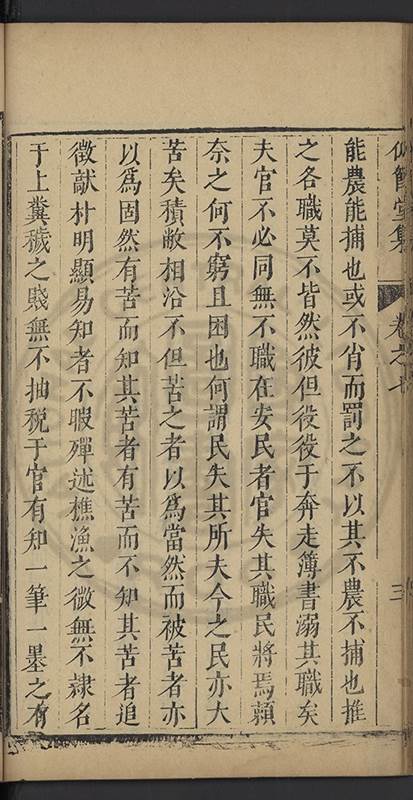 堂集
卷之七
三
能農能捕也或不肖而罰之不以其不農不捕也推
之各職莫不皆然彼但役役于奔走簿書溺其職矣
夫官不必同無不職在安民者官失其職民將焉賴
奈之何不窮且困也何謂民失其所夫今之民亦大
苦矣積敝相沿不但苦之者以為當然而被苦者亦
以為固然有苦而知其苦者有苦而不知其苦者追
徵獻村明顯易知者不暇殫述樵漁之微無不隷名
于上糞穢之賤無不抽税于官有知一筆一墨之有